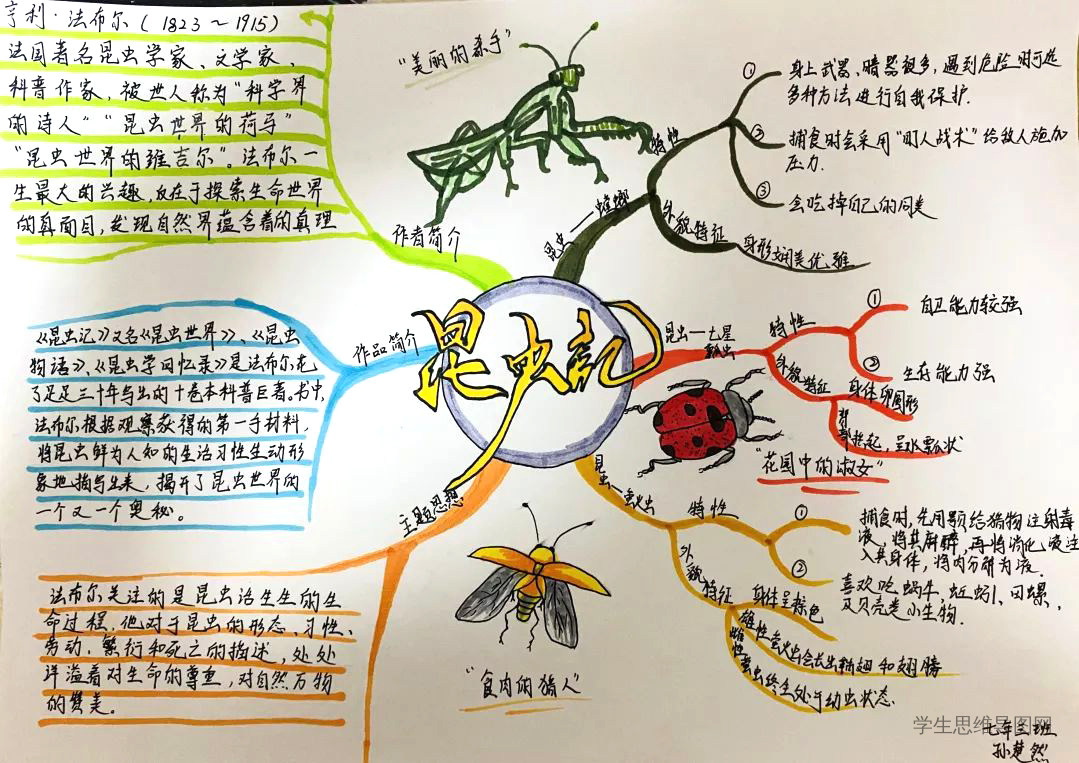 亨利·法布尔(1823～1915)
法国著名昆虫学家、文学家、
科普作家，被世人称为“科学界
的诗人”“昆虫世界的荷马”
“昆虫世界的维吉尔”。法布尔一
生最大的兴趣，在于探索生命世界
的真面目，发现自然界蕴含着的真理
作者简介
“美丽的杀手”
昆虫—螳螂
特性
① 身上武器、暗器很多，遇到危险时可选
多种方法进行自我保护.
② 捕食时会采用“吓人战术”给敌人施加
压力.
③ 会吃掉自己的同类
外貌特征
身形娴美优雅
昆虫记
作品简介
《昆虫记》又名《昆虫世界》、《昆虫
物语》、《昆虫学回忆录》是法布尔花
了足足三十年写出的十卷本科普巨著。书中，
法布尔根据观察获得的第一手材料，
将昆虫鲜为人知的生活习性生动形
象地描写出来，揭开了昆虫世界的
一个又一个奥秘。
昆虫—七星
瓢虫
特性
① 自卫能力较强
② 生存能力强
外貌特征
身体卵圆形
背部拱起，呈水瓢状
“花园中的淑女”
主题思想
法布尔关注的是昆虫活生生的生
命过程，他对于昆虫的形态、习性、
劳动、繁衍和死亡的描述，处处
洋溢着对生命的尊重，对自然万物
的赞美。
昆虫—萤火虫
特性
① 捕食时，先用颚给猎物注射毒
液，将其麻醉，再将消化液注
入其身体，将肉分解为液.
② 喜欢吃蜗牛、蚯蚓、田螺，
及贝壳类小生物.
外貌特征
身体呈棕色
雄性萤火虫会长出鞘翅和翅膀
雌性萤虫终生处于幼虫状态.
“食肉的猎人”
学生思维导图网
七年三班
孙楚然